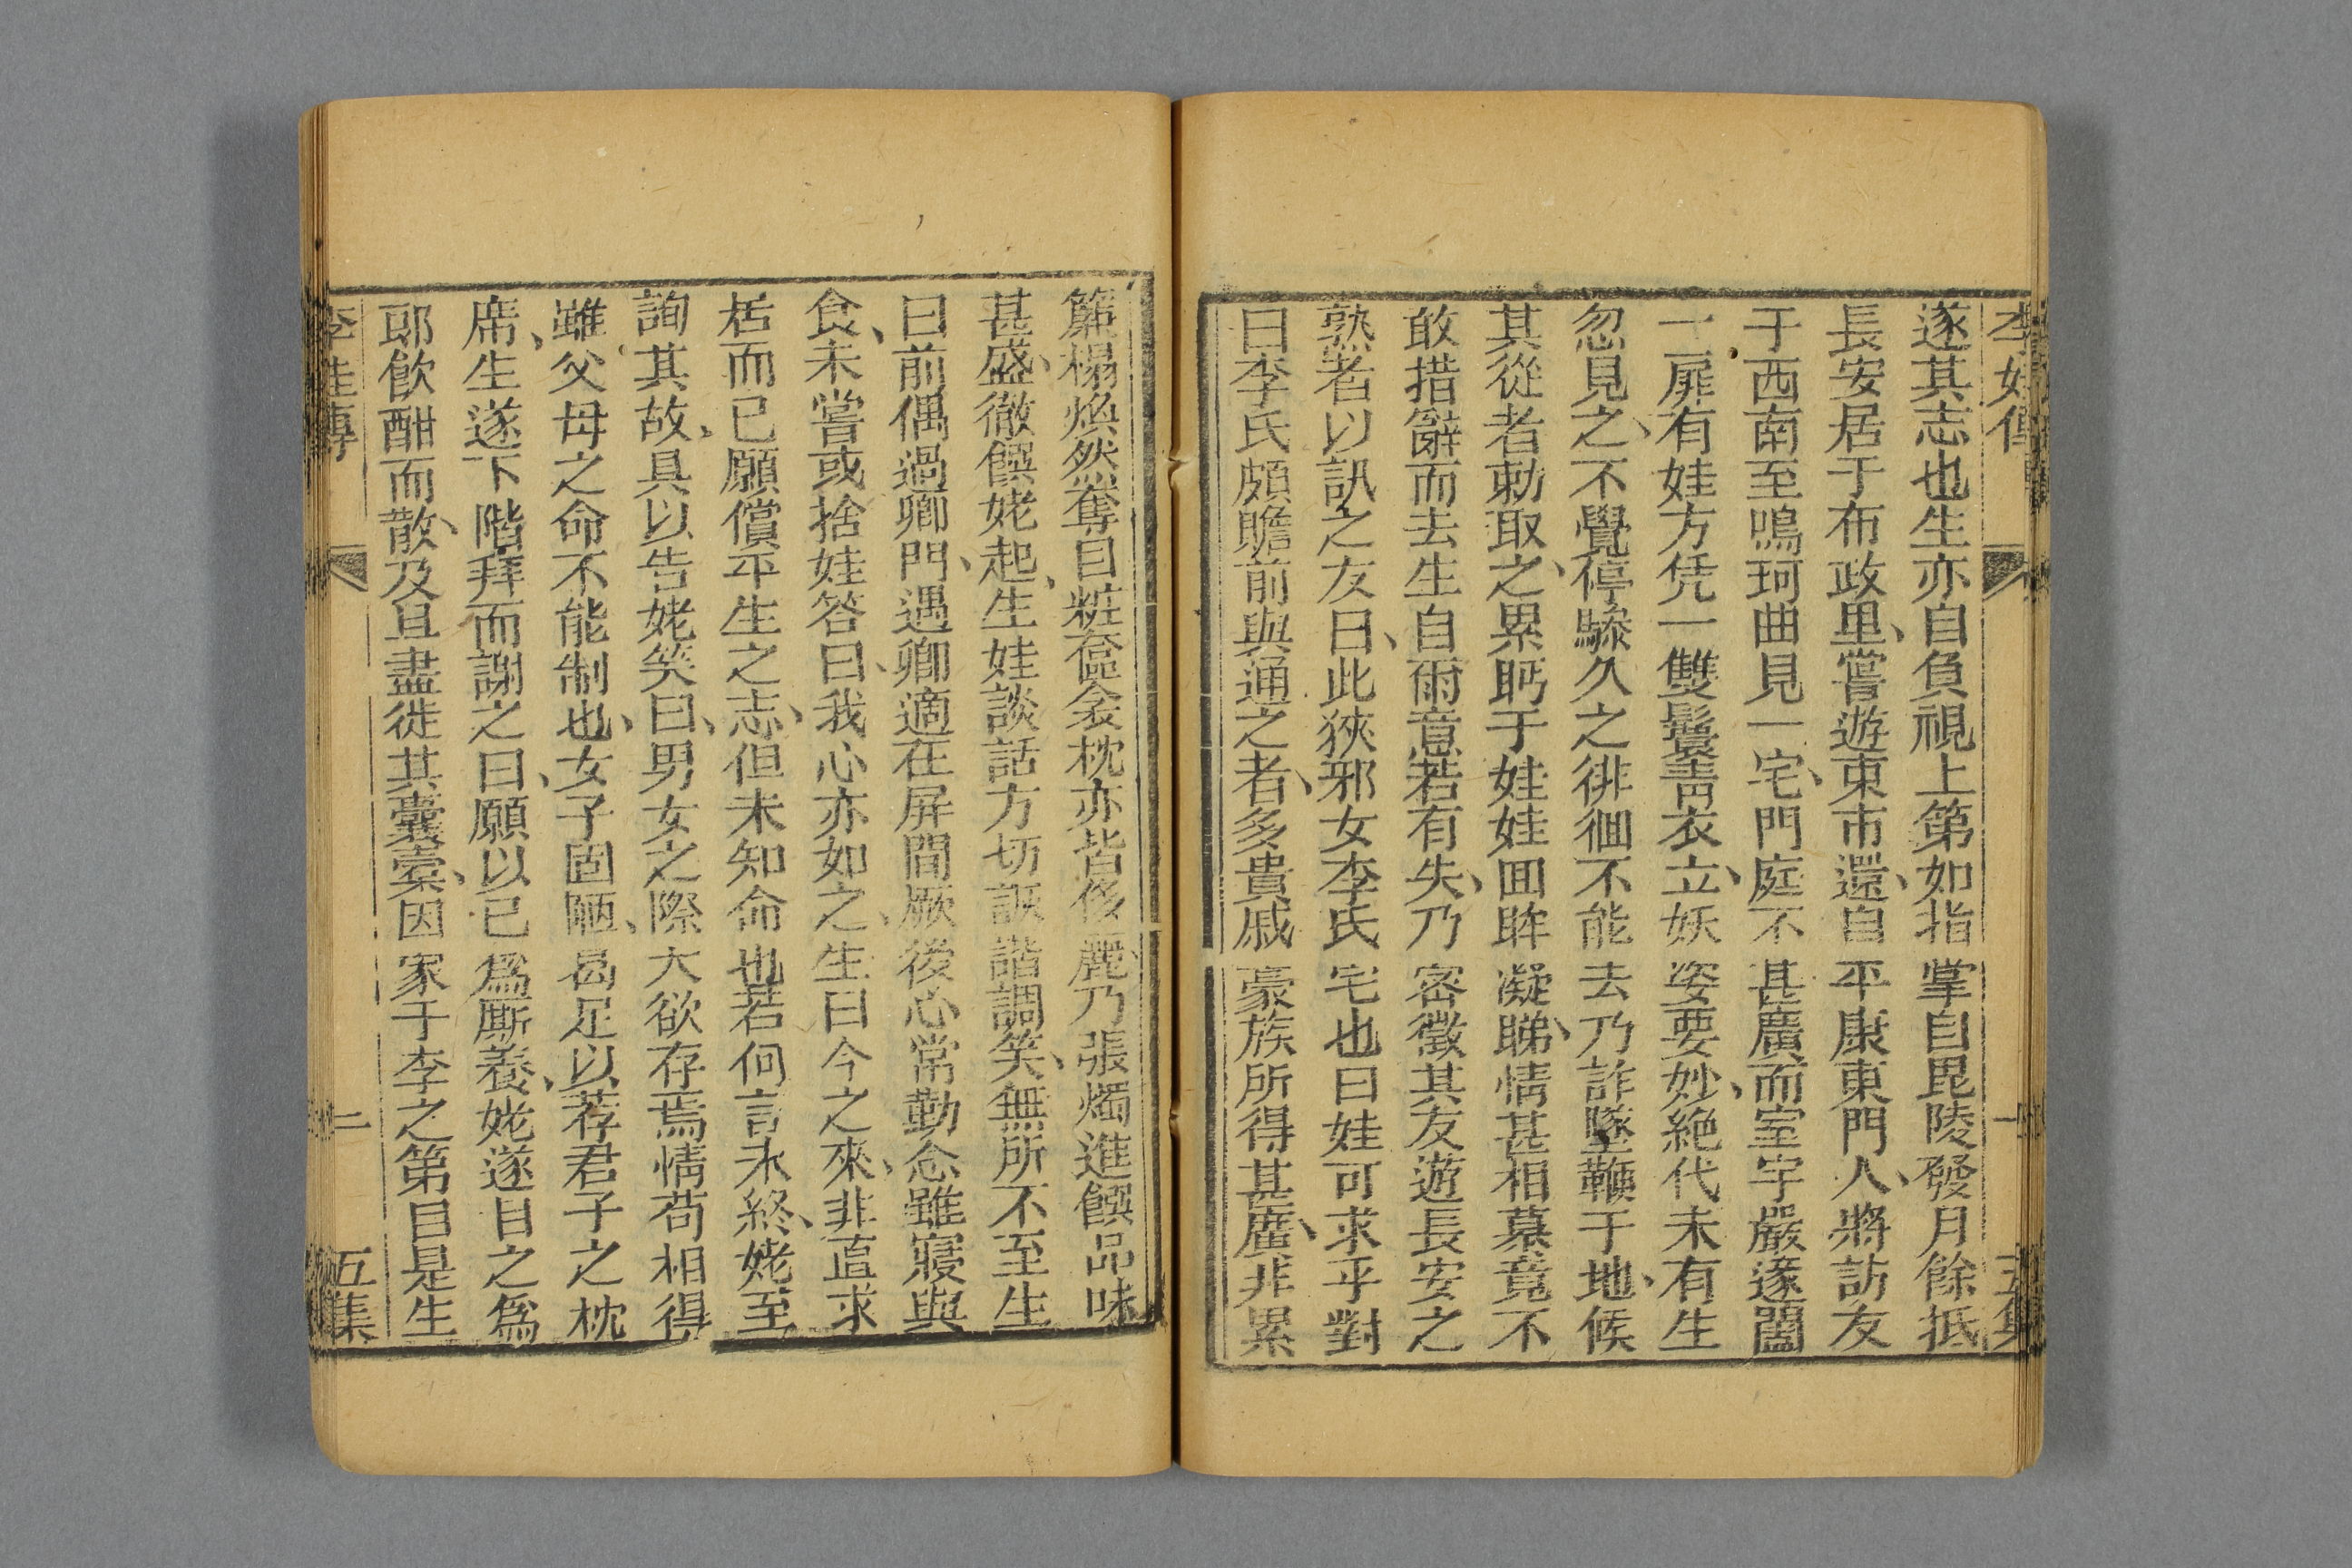 遂其志也生亦自負視上第如指掌自毘陵發月餘抵
長安居于布政里、嘗遊東市還、自平康東門人、將訪友
于西南至鳴珂曲見一宅、門庭不甚廣而室宇嚴邃闔
一扉有娃方凭一雙鬟靑衣立、妖姿要妙、絶代未有生
忽見之、不覺停驂久之徘徊不能去乃詐墜鞭于地、候
其從者勅取之、累眄于娃娃囬眸凝睇、情甚相慕竟不
敢措辭而去生自爾意若有失、乃密徵其友遊長安之
熟者以訊之友曰、此狹邪女李氏宅也曰娃可求乎對
曰李氏頗贍前與通之者、多貴戚豪族所得甚廣、非累
簾榻煥然奪目粧奩衾枕亦皆侈麗、乃張燭進饌品味
甚盛、徹饌姥起、生娃談話方切詼諧調笑、無所不至生
曰前偶過卿門、遇卿適在屏間厥後心常勤念雖寢與
食、未嘗或捨娃答曰、我心亦如之、生曰今之來、非直求
居而已願償平生之志、但未知命也若何言未終、姥至
詢其故、具以告姥笑曰、男女之際大欲存焉情苟相得
雖父母之命不能制也、女子固陋、曷足以荐君子之枕
席、生遂下階拜而謝之曰、願以已爲厮養、姥遂目之爲
郎飮酣而散、及旦盡徙其囊橐、因家于李之第自是生
李娃傳 二 五集